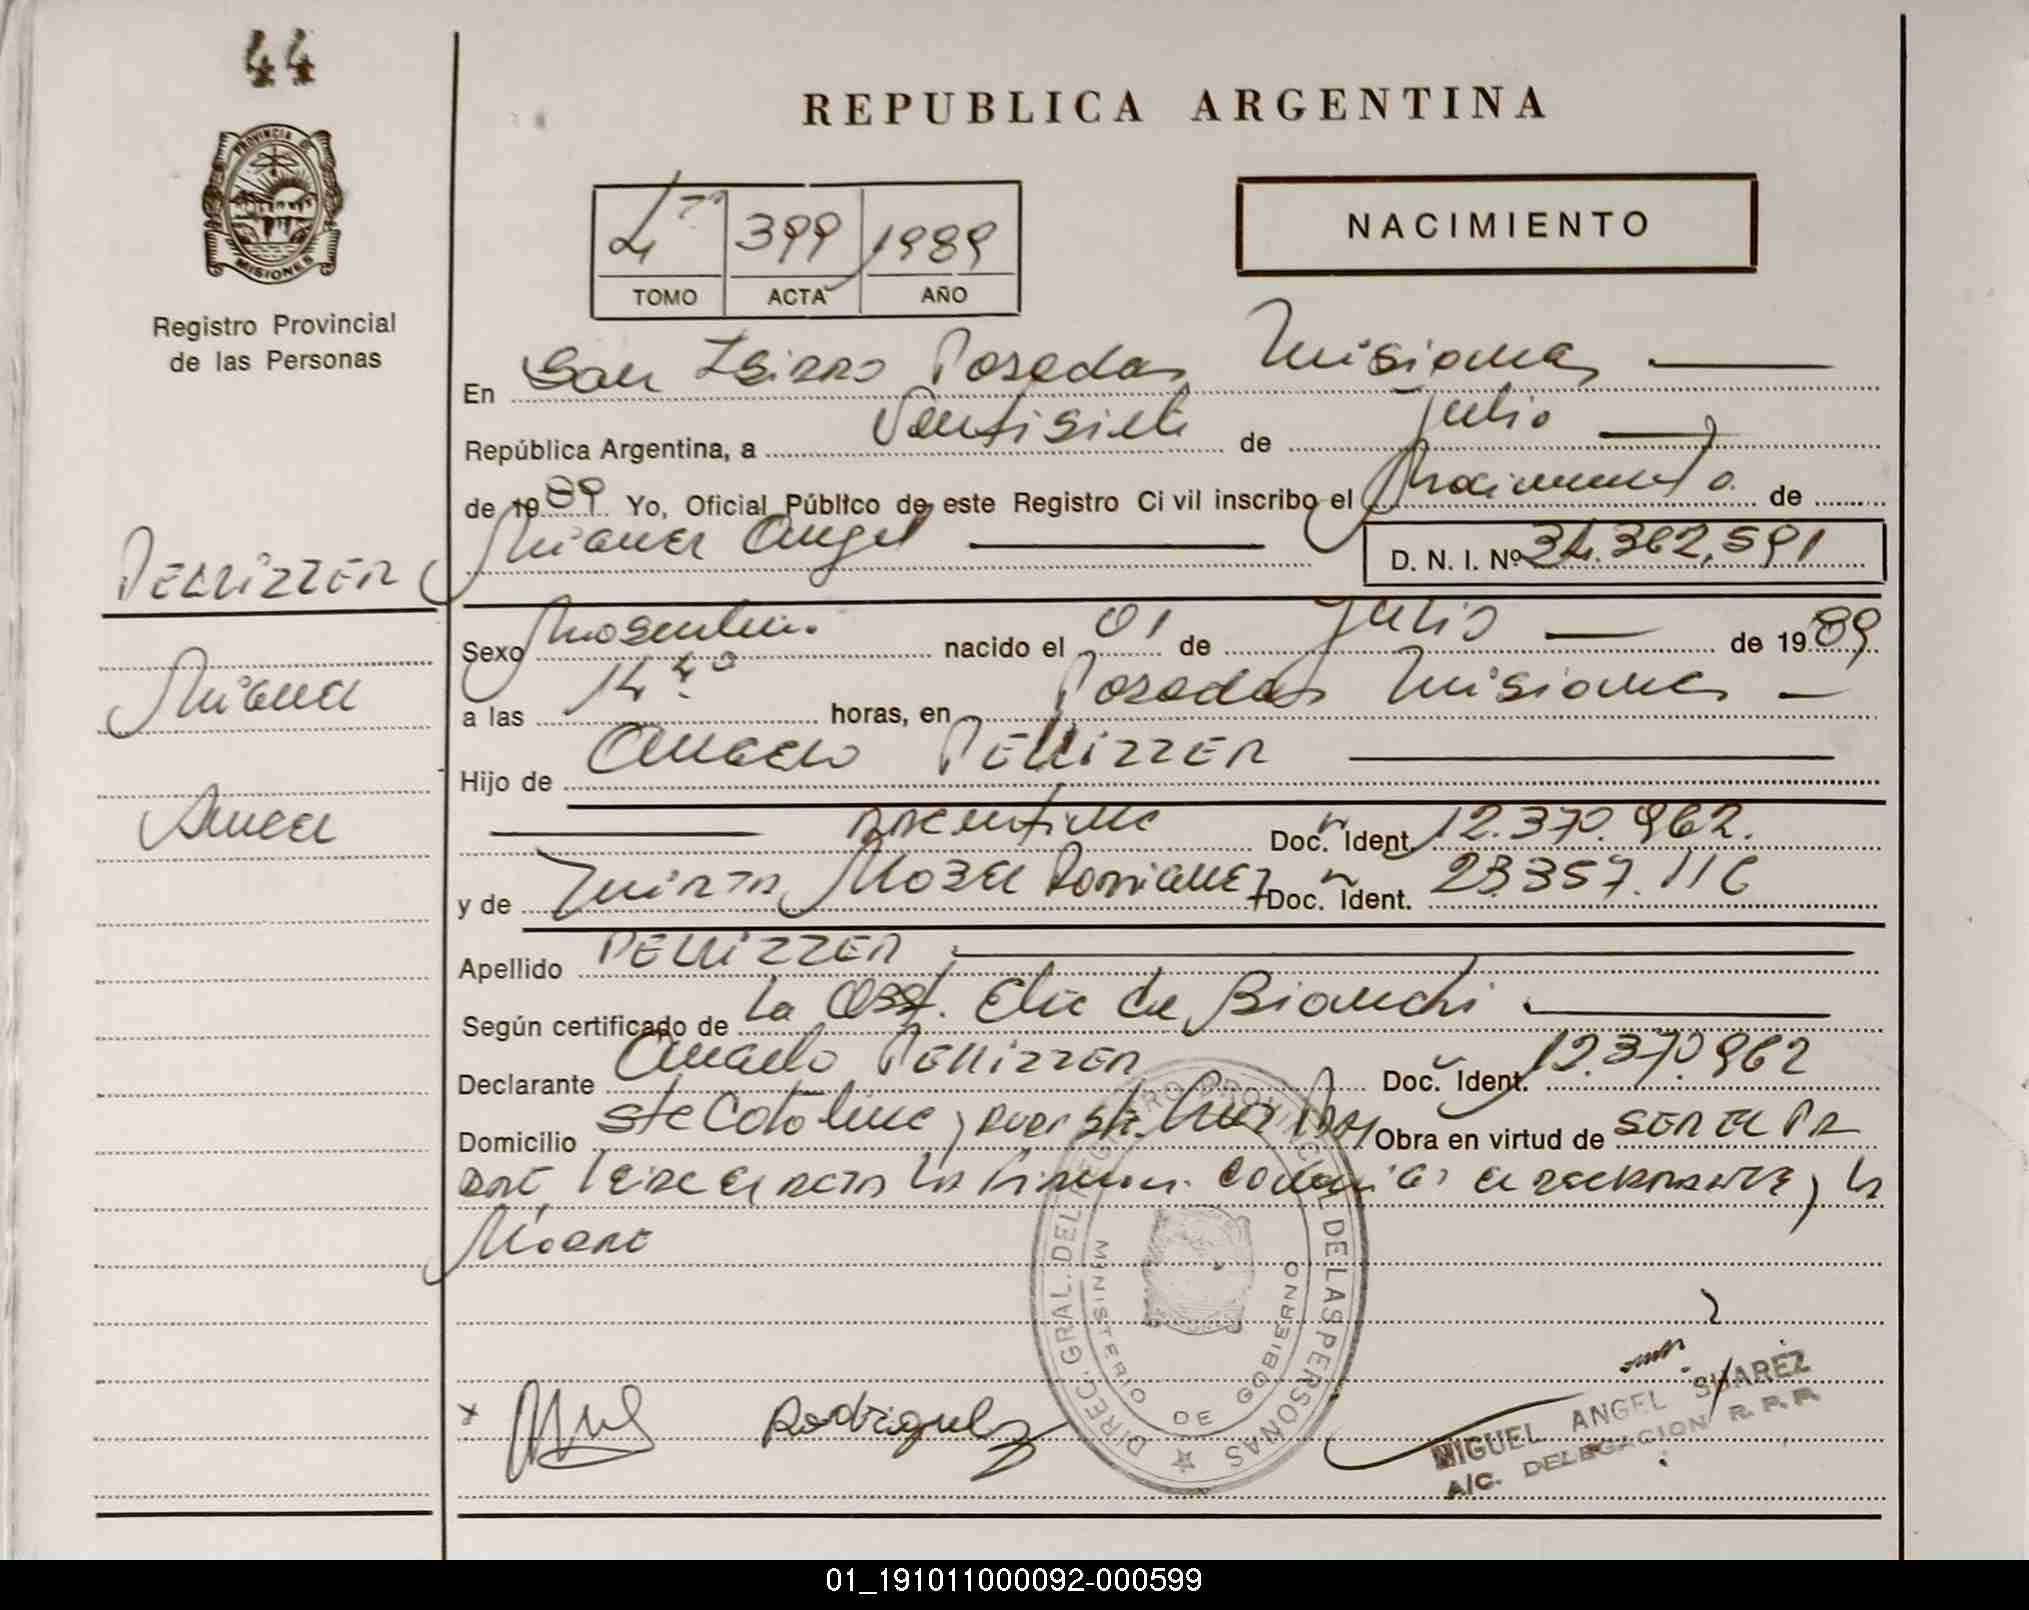 44
PROVINCIA DE
MISIONES
Registro Provincial
de las Personas
REPUBLICA ARGENTINA
4º 399 1989
TOMO ACTA AÑO
NACIMIENTO
En San Isidro Posadas Misiones
República Argentina, a Ventisiete de Julio
de 1989 Yo, Oficial Público de este Registro Civil inscribo el Nacimiento de
Miguel Angel
D. N. I. Nº 34.362.591
PELLIZZER
Miguel
Angel
Sexo Masculino nacido el 01 de Julio de 1989
a las 14 horas, en Posadas Misiones
Hijo de Angelo PELLIZZER
Argentino Doc. Ident. 12.370.962.
y de Mirta Mabel Rodriguez Doc. Ident. 23.357.116
Apellido PELLIZZER
Según certificado de la Obst. de Bianchi
Declarante Angelo Pellizzer Doc. Ident. 12.370.962
Domicilio Sta Catalina y Obra en virtud de SER EL PA
DRE, Leída el acta la firman el declarante y la
Madre
Rodriguez
DIREC. GRAL. DEL REGISTRO PROVINCIAL DE LAS PERSONAS
MINISTERIO DE GOBIERNO
MIGUEL ANGEL SUAREZ
A/C. DELEGACION R. P. P.
01_191011000092-000599